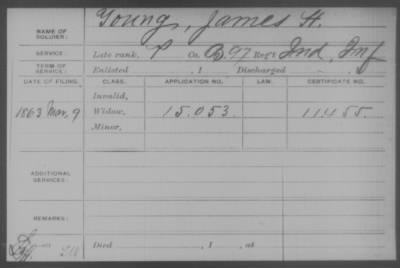 NAME OF SOLDIER: Young, James H.
SERVICE: Late rank, P Co. B, 97 Reg't Ind. Inf
TERM OF SERVICE: Enlisted , 1 Discharged , 1
DATE OF FILING. CLASS. APPLICATION NO. LAW. CERTIFICATE NO.
Invalid,
1863 Mar. 9 Widow, 15.053. 11455.
Minor,
ADDITIONAL SERVICES:
REMARKS:
Died , 1 , at